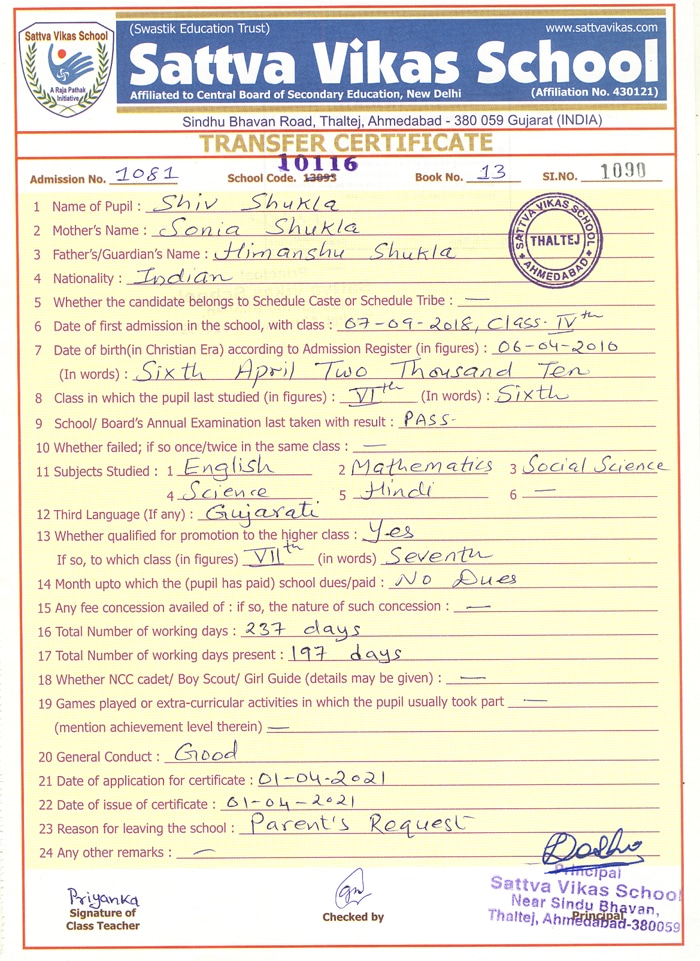 Sattva Vikas School
A Raja Pathak
Initiative
(Swastik Education Trust) www.sattvavikas.com
Sattva Vikas School
Affiliated to Central Board of Secondary Education, New Delhi (Affiliation No. 430121)
Sindhu Bhavan Road, Thaltej, Ahmedabad - 380 059 Gujarat (INDIA)
TRANSFER CERTIFICATE
10116
Admission No. 1081 School Code. 13093 Book No. 13 SI.NO. 1090
1 Name of Pupil : Shiv Shukla
2 Mother's Name : Sonia Shukla
3 Father's/Guardian's Name : Himanshu Shukla
SATTVA VIKAS SCHOOL
THALTEJ
AHMEDABAD
4 Nationality : Indian
5 Whether the candidate belongs to Schedule Caste or Schedule Tribe : —
6 Date of first admission in the school, with class : 07-09-2018, Class- IVth
7 Date of birth(in Christian Era) according to Admission Register (in figures) : 06-04-2010
(In words) : Sixth April Two Thousand Ten
8 Class in which the pupil last studied (in figures) : VIth (In words) : Sixth
9 School/ Board's Annual Examination last taken with result : PASS-
10 Whether failed; if so once/twice in the same class : —
11 Subjects Studied ; 1 English 2 Mathematics 3 Social Science
4 Science 5 Hindi 6 —
12 Third Language (If any) : Gujarati
13 Whether qualified for promotion to the higher class : Yes
If so, to which class (in figures) VIIth (in words) Seventh
14 Month upto which the (pupil has paid) school dues/paid : No Dues
15 Any fee concession availed of : if so, the nature of such concession : —
16 Total Number of working days : 237 days
17 Total Number of working days present : 197 days
18 Whether NCC cadet/ Boy Scout/ Girl Guide (details may be given) : —
19 Games played or extra-curricular activities in which the pupil usually took part —
(mention achievement level therein) —
20 General Conduct : Good
21 Date of application for certificate : 01-04-2021
22 Date of issue of certificate : 01-04-2021
23 Reason for leaving the school : Parent's Request
24 Any other remarks : —
Priyanka
Signature of
Class Teacher
Checked by
Principal
Sattva Vikas School
Near Sindu Bhavan,
Thaltej, Ahmedabad-380059
Principal